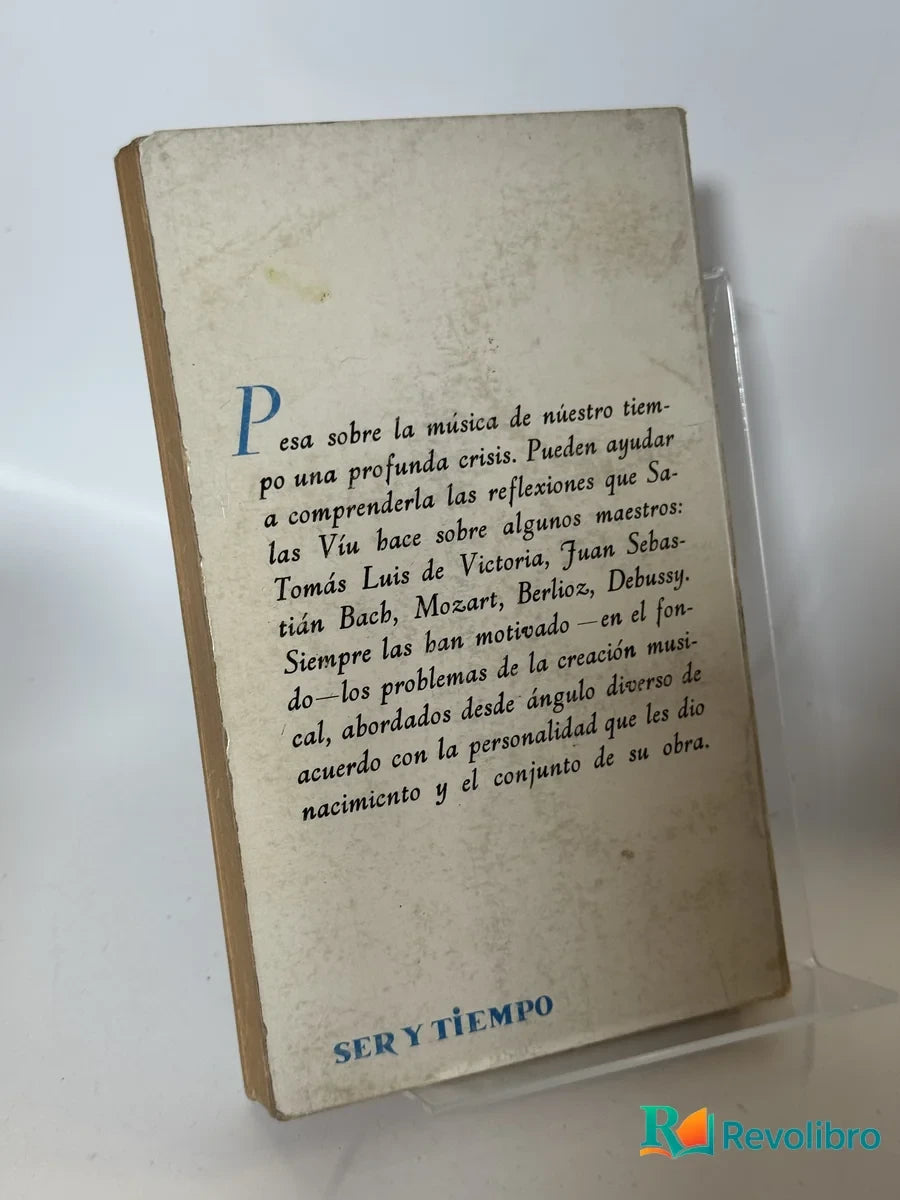 Pesa sobre la música de núestro tiem-
po una profunda crisis. Pueden ayudar
a comprenderla las reflexiones que Sa-
las Víu hace sobre algunos maestros:
Tomás Luis de Victoria, Juan Sebas-
tián Bach, Mozart, Berlioz, Debussy.
Siempre las han motivado —en el fon-
do—los problemas de la creación musi-
cal, abordados desde ángulo diverso de
acuerdo con la personalidad que les dio
nacimiento y el conjunto de su obra.
SER Y TIEMPO
R Revolibro